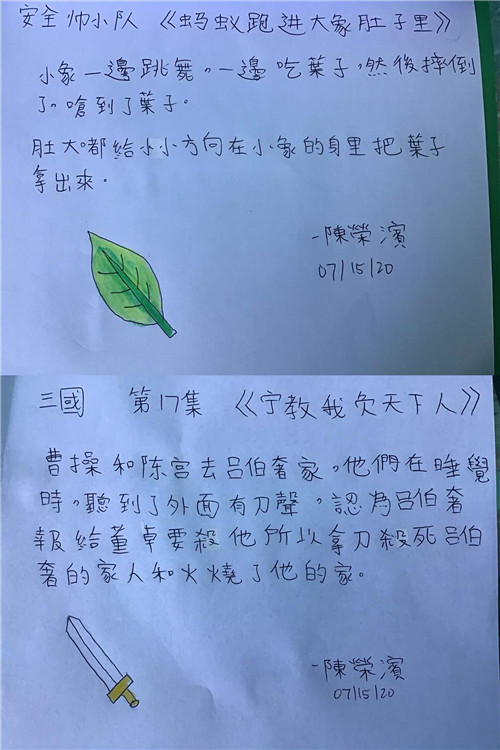 安全帅小队 《蚂蚁跑进大象肚子里》
小象一邊跳舞，一邊吃葉子，然後摔倒
了，嗆到了葉子。
肚大嘟給小小方向在小象的身里把葉子
拿出來。
-陳榮濱
07/15/20
三國 第17集 《宁教我欠天下人》
曹操和陈宫去呂伯奢家，他們在睡覺
時，聽到了外面有刀聲，認為呂伯奢
報給董卓要殺他所以拿刀殺死呂伯
奢的家人和火燒了他的家。
-陳榮濱
07/15/20